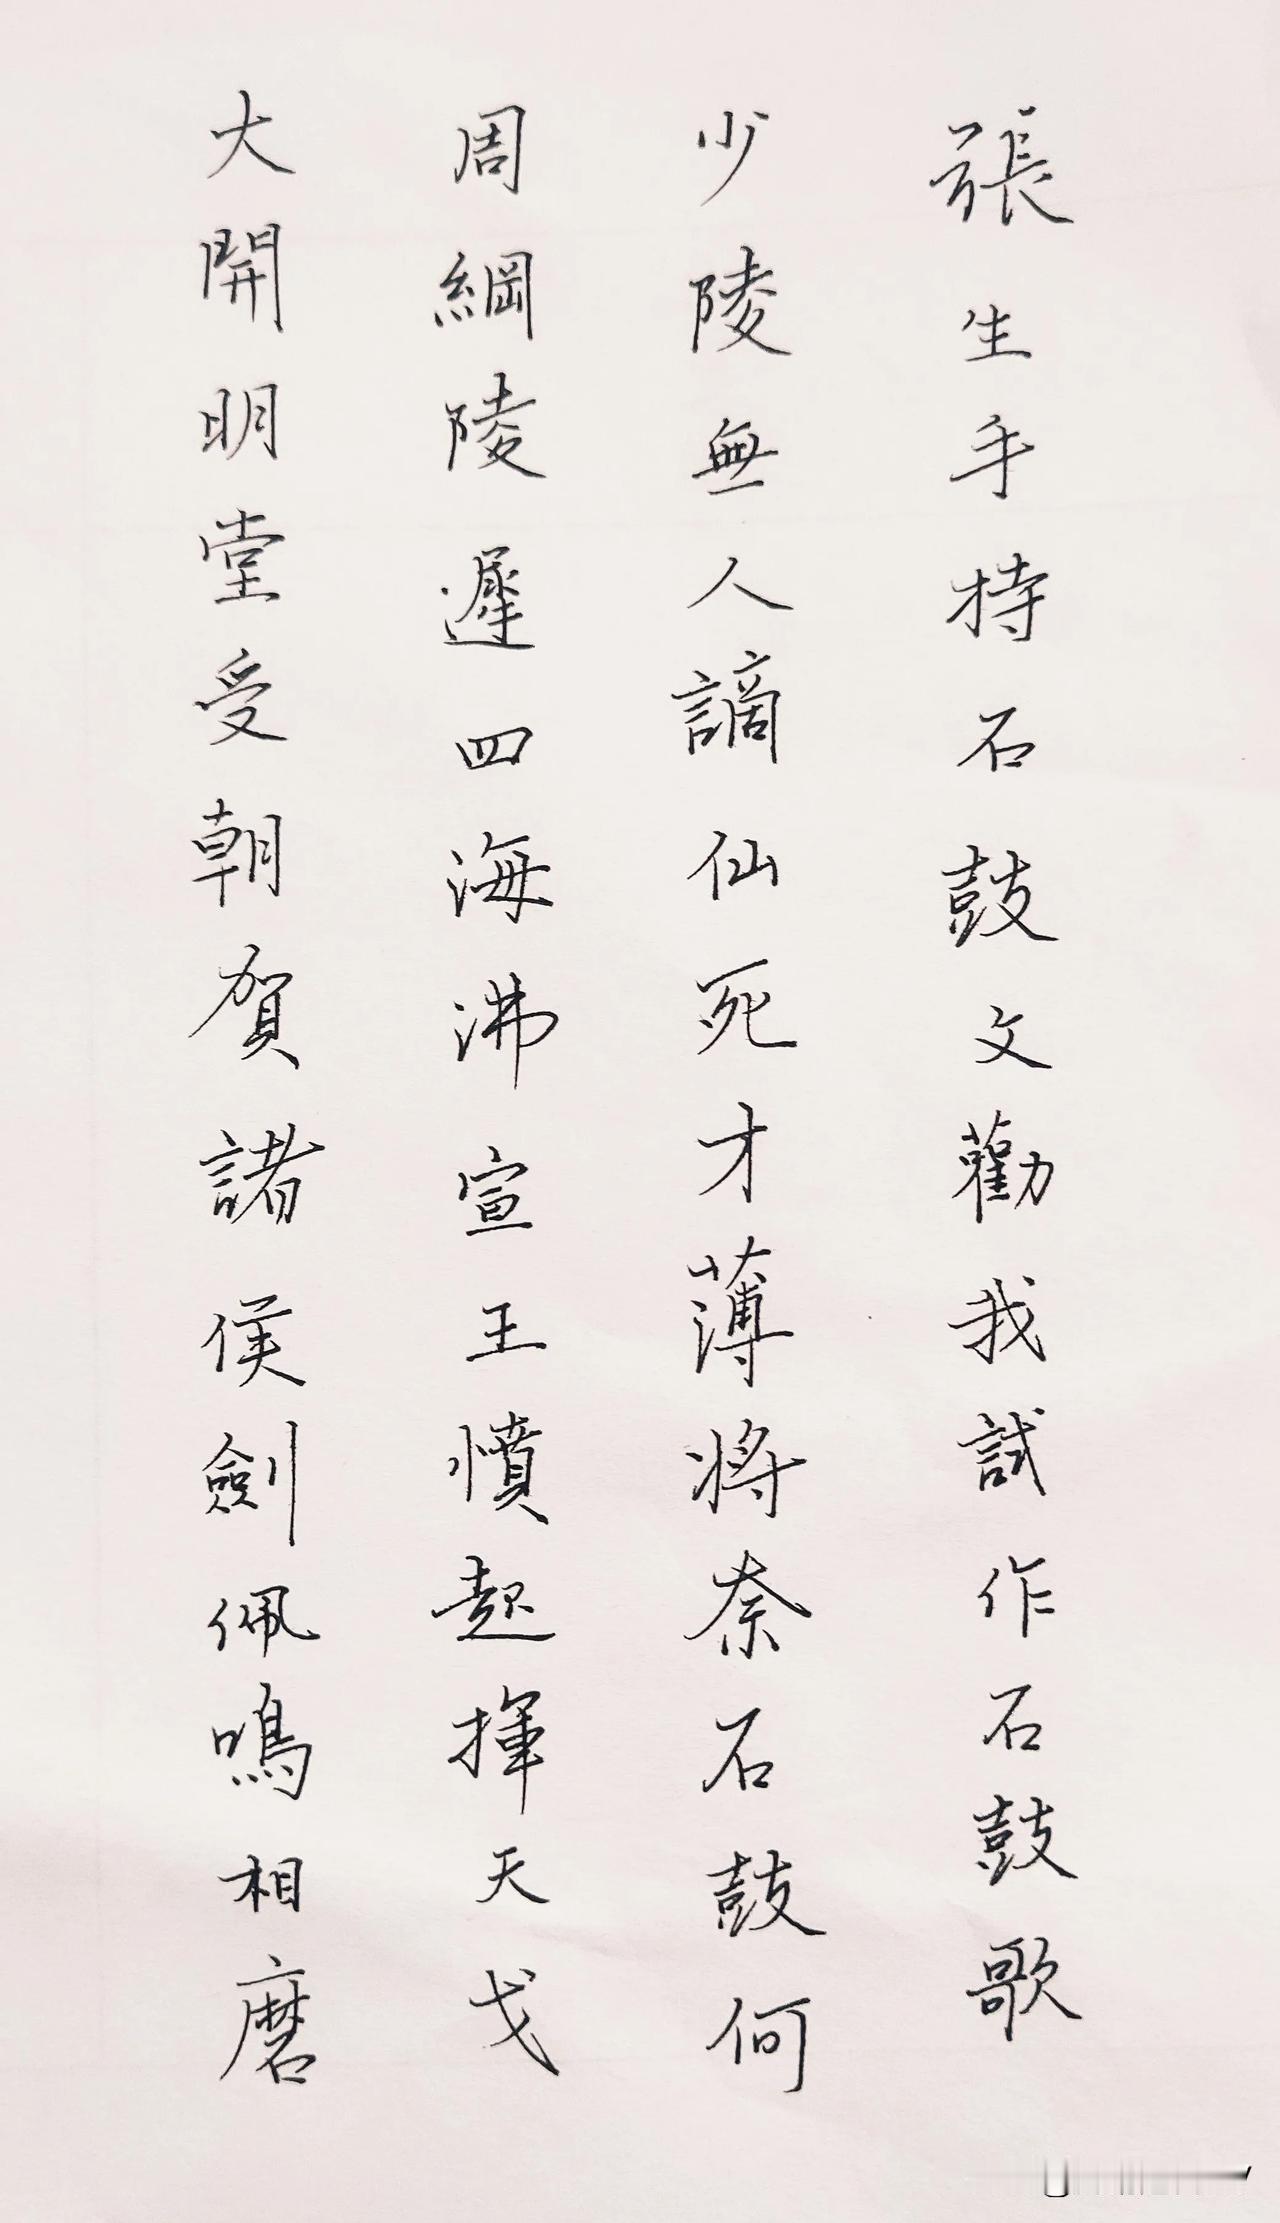 張生手持石鼓文勸我試作石鼓歌
少陵無人謫仙死才薄將奈石鼓何
周綱陵遲四海沸宣王憤起揮天戈
大開明堂受朝賀諸侯劍佩鳴相磨